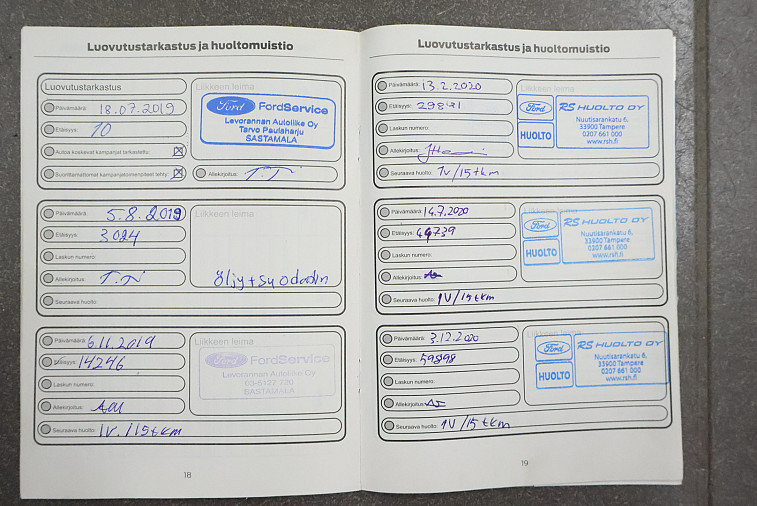 Luovutustarkastus ja huoltomuistio
Luovutustarkastus
Liikkeen leima
Päivämäärä: 18.07.2019
Etäisyys: 10
Autoa koskevat kampanjat tarkastettu
Suorittamattomat kampanjatoimenpiteet tehty
Ford FordService
Levorannan Autoliike Oy
Tarvo Paulaharju
SASTAMALA
Allekirjoitus: TT
Päivämäärä: 5.8.2019
Liikkeen leima
Etäisyys: 3024
Laskun numero:
Allekirjoitus: T.T
öljy+suodadin
Seuraava huolto:
Päivämäärä: 6.11.2019
Liikkeen leima
Etäisyys: 14246
Laskun numero:
Ford FordService
Levorannan Autoliike Oy
03-5127 720
SASTAMALA
Allekirjoitus:
Seuraava huolto: 1v./15tkm
18
Luovutustarkastus ja huoltomuistio
Päivämäärä: 13.2.2020
Etäisyys: 29841
Laskun numero:
Allekirjoitus:
Seuraava huolto: 1v/15tkm
Ford
HUOLTO
RS HUOLTO OY
Nuutisarankatu 6,
33900 Tampere
0207 661 000
www.rsh.fi
Päivämäärä: 14.7.2020
Liikkeen leima
Etäisyys: 44739
Laskun numero:
Allekirjoitus:
Seuraava huolto: 1V/15tkm
Ford
HUOLTO
RS HUOLTO OY
Nuutisarankatu 6,
33900 Tampere
0207 661 000
www.rsh.fi
Päivämäärä: 3.12.2020
Liikkeen leima
Etäisyys: 59898
Laskun numero:
Allekirjoitus:
Seuraava huolto: 1V/15tkm
Ford
HUOLTO
RS HUOLTO OY
Nuutisarankatu 6,
33900 Tampere
0207 661 000
www.rsh.fi
19